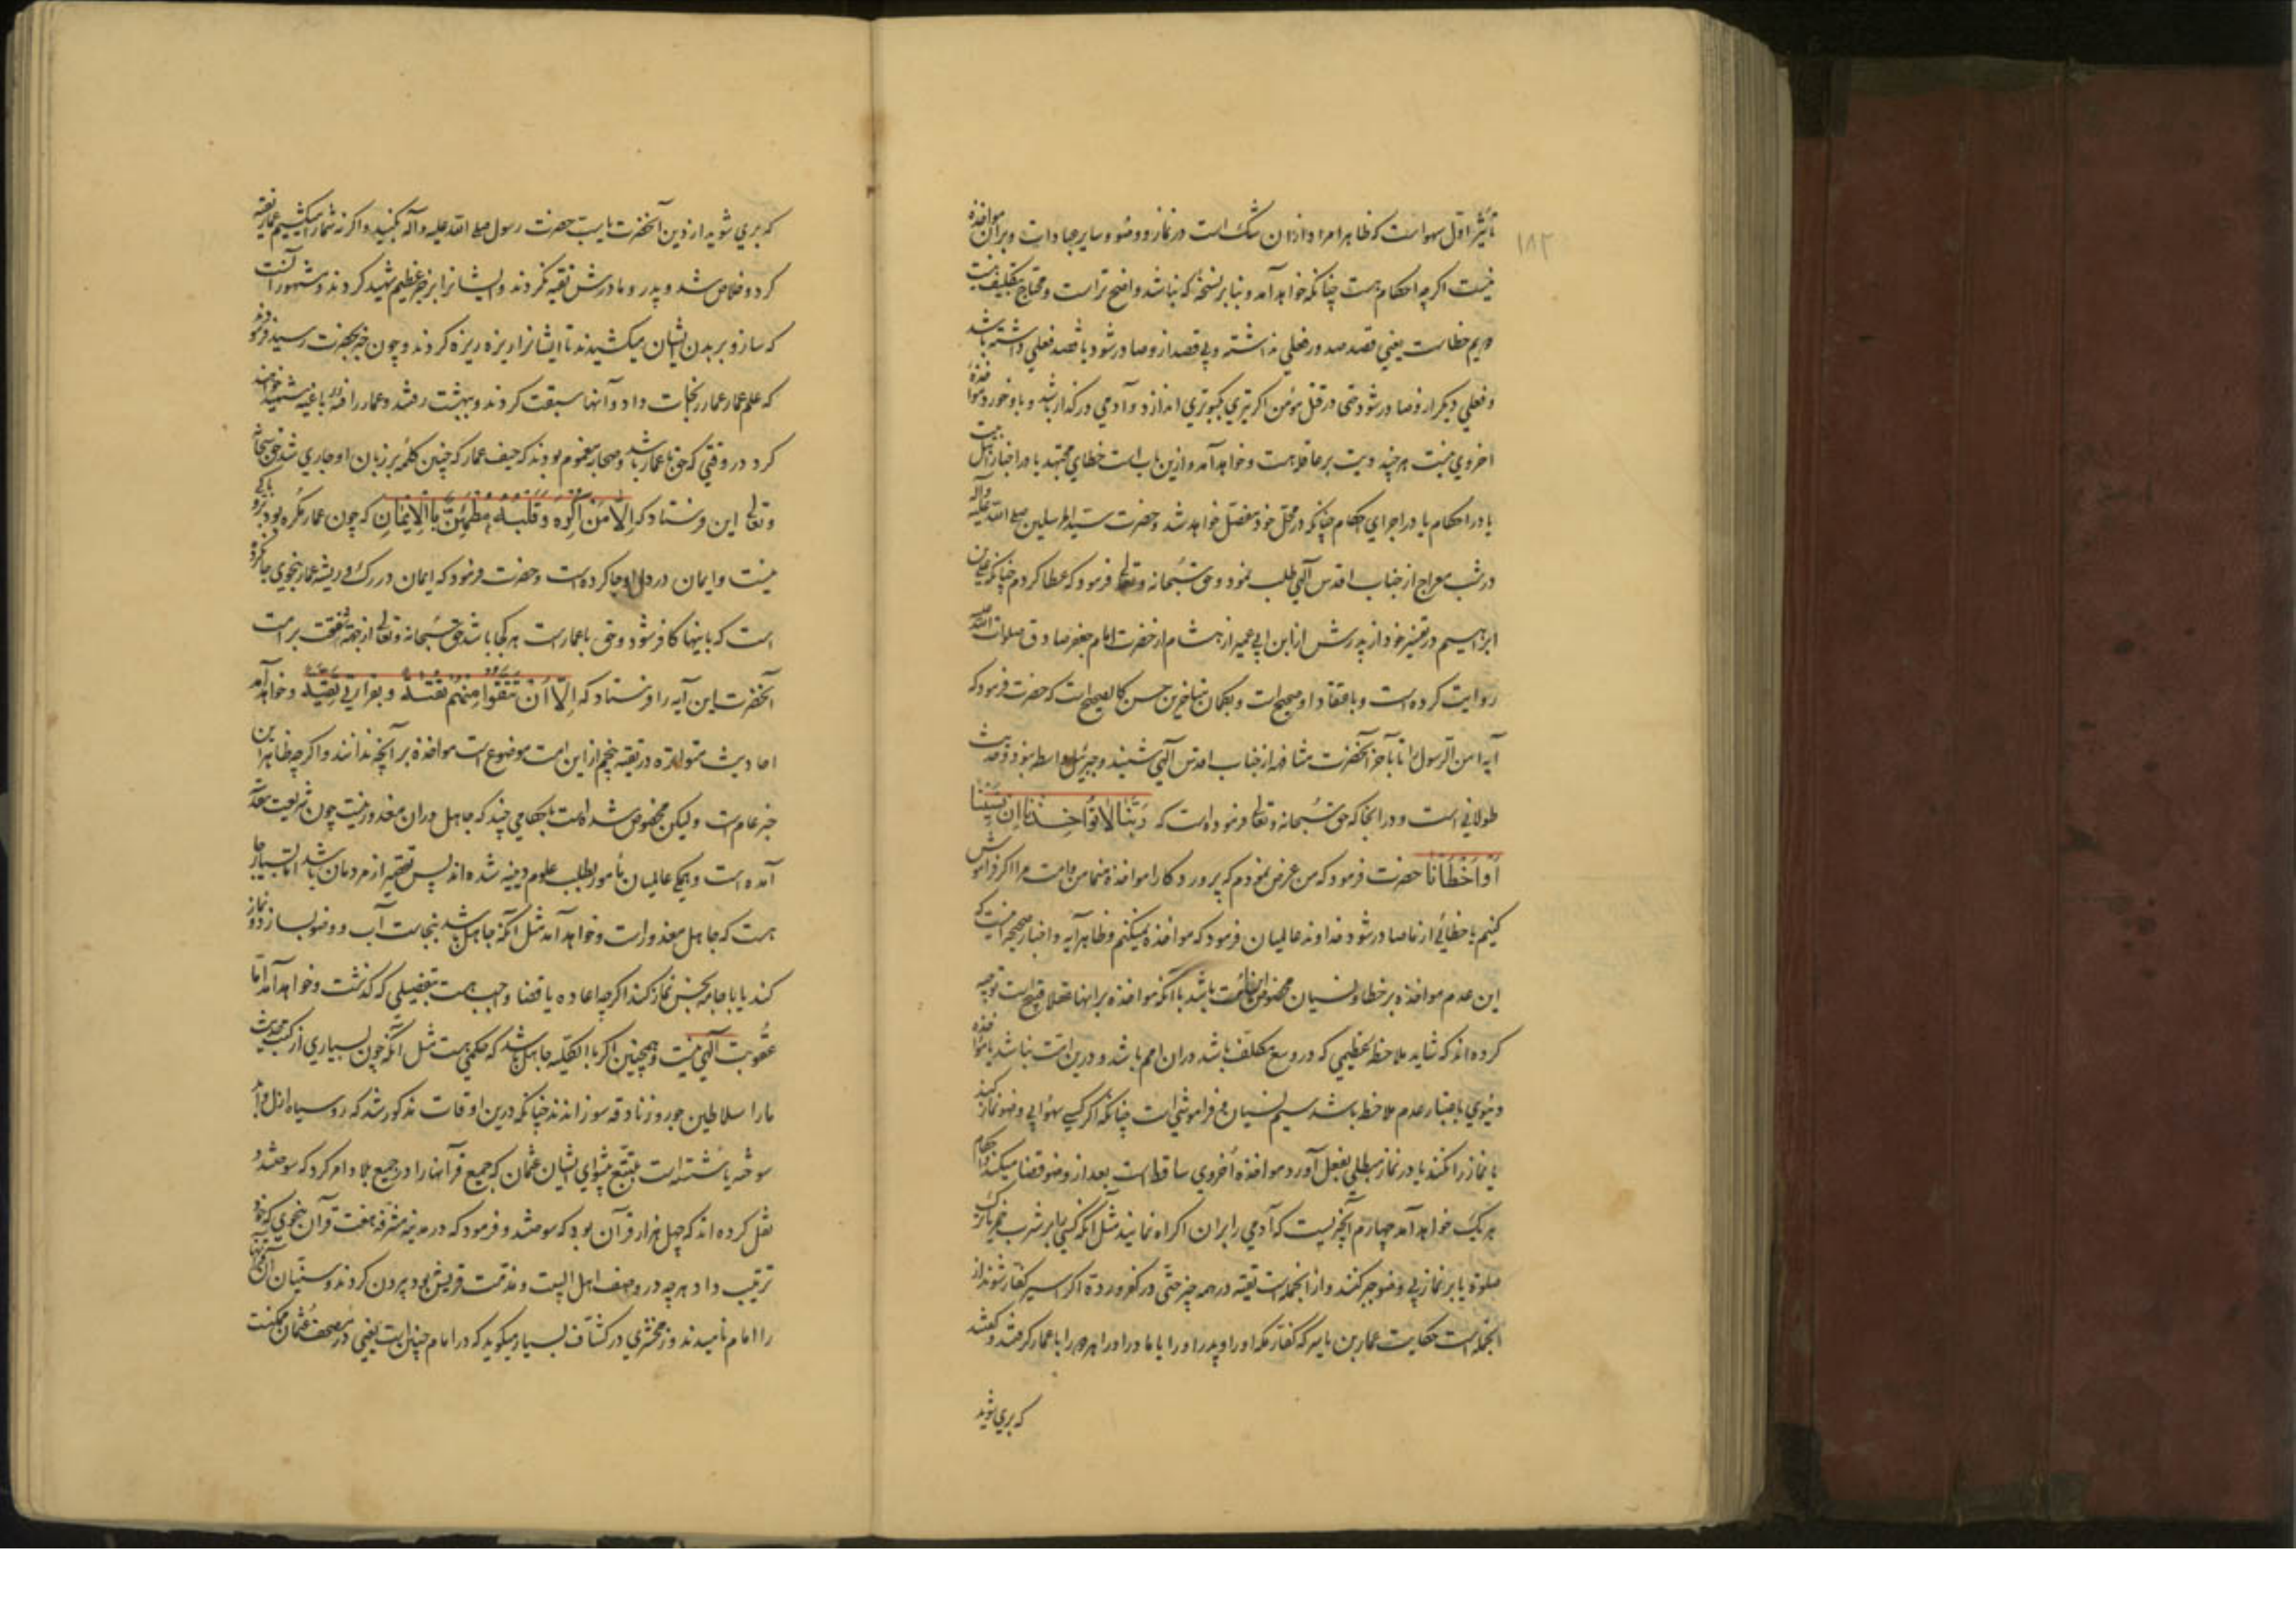 ۱۸۳
تأثیر اول سهو است که ظاهرا مراد از ان شک است در نماز و وضو و سایر عبادات و بران مؤاخذه
نیست اگرچه احکام هست چنانکه خواهد آمد و بنابر نسخهٔ که نباشد واضح تر است و محتاج بتکلیف نیست
دویم خطاست یعنی قصد صدور فعلی نداشته و بی قصد از و صادر شود یا قصد فعلی داشته باشد
و فعلی دیگر از و صادر شود حتی در قتل مؤمن اگر تیری بکبوتری اندازد و آدمی در گذار باشد و باو خورد مؤاخذهٔ
اخروی نیست هر چند دیت بر عاقله هست و خواهد آمد و ازین باب است خطای مجتهد یا در اخبار
یا در احکام یا در اجرای احکام چنانکه در محل خود مفصل خواهد شد و حضرت سید المرسلین صلی الله علیه وآله
در شب معراج از جناب اقدس آلهی طلب نمود و حق سبحانه و تعالی فرمود که عطا کردم چنانکه علی بن
ابراهیم در تفسیر خود از پدرش از ابن ابی عمیر از هشام از حضرت امام جعفر صادق صلوات الله علیه
روایت کرده است و باعتقاد او صحیح است و بگمان متاخرین حسن کالصحیح است که حضرت فرمود که
آیه امن الرسول را تا بآخر آنحضرت مشافهه از جناب اقدس آلهی شنید و جبرئیل واسطه نبود و حدیث
طولانی است و در انجا که حق سبحانه و تعالی فرموده است که رَبَّنَا لَا تُؤَاخِذْنَا اِنْ نَسِینَا
اَوْ اَخْطَأْنَا حضرت فرمود که من عرض نمودم که پروردکارا مؤاخذه منما من و امت مرا اکر فراموش
کنیم یا خطائی از ما صادر شود خداوند عالمیان فرمود که مؤاخذه نمیکنم و ظاهر آیه و اخبار صحیحه اینست که
این عدم مؤاخذه بر خطا و نسیان مخصوص این امت باشد با آنکه مؤاخذه بر اینها عقلا قبیح است توجیه
کرده اند که شاید ملاحظه عظیمی که در وسع مکلف باشد دران امم باشد و درین امت نباشد یا مؤاخذه
دنیوی باعتبار عدم ملاحظه باشد سیم نسیان و فراموشی است چنانکه اگر کسی سهوا بی وضو نماز کند
یا نماز را نکند یا در نماز مبطلی بفعل آورد مؤاخذه اُخروی ساقط است بعد از وضو قضا میکند و احکام
هر یک خواهد آمد چهارم آنچیزیست که آدمی را بران اکراه نمایند مثل آنکه کسی را بر شرب خمر یا ترک
صلوة یا بر نماز بی وضو جبر کنند و از انجمله است تقیه در همه چیز حتی در کفر و ردة اکر اسیر کفار شوند از
انجمله است حکایت عمار بن یاسر که کفار مکه او را و پدر او را با مادر او را همه را با عمار کرفتند و گفتند
که بری شوید
که بری شوید از دین آنحضرت یا سبّ حضرت رسول صلی الله علیه وآله بکنید و اگر نه شما را میکشیم عمار تقیه
کرد و خلاص شد و پدر و مادرش تقیه نکردند و ایشانرا بزجر عظیم شهید کردند و مشهور آنست
که سازو بر بدن ایشان میکشیدند تا ایشانرا ریزه ریزه کردند و چون خبر بحضرت رسید فرمودند
که علم عمار عمار را نجات داد و آنها سبقت کردند و ببهشت رفتند و عمار را فئهٔ باغیه شهید خواهند
کرد در وقتی که حق با عمار باشد و صحابه مغموم بودند که حیف عمار که چنین کلمهٔ بر زبان او جاری شد حق سبحانه
و تعالی این فرستاد که اِلَّا مَنْ اُکْرِهَ وَ قَلْبُهُ مُطْمَئِنٌّ بِالْاِیمَانِ که چون عمار مکره بود برو باکی
نیست و ایمان در دل او جا کرده است و حضرت فرمود که ایمان در رک و ریشه عمار بنحوی جا کرده
است که باینها کافر شود و حق با عمار است هر کجا باشد حق سبحانه و تعالی از جهة شفقت بر امت
آنحضرت این آیه را فرستاد که اِلَّا اَنْ تَتَّقُوا مِنْهُمْ تُقٰیةً و بقراءتی تَقِیَّةً و خواهد آمد
احادیث متواتره در تقیه پنجم از این امت موضوع است مؤاخذه بر آنچه ندانند و اگرچه ظاهرا این
خبر عام است ولیکن مخصوص شده است باحکامی چند که جاهل دران معذور نیست چون شریعت مقدسه
آمده است و همکی عالمیان مأمور بطلب علوم دینیه شده اند پس تقصیر از مردمان باشد اما بسیار جا
هست که جاهل معذور است و خواهد آمد مثل آنکه جاهل باشد بنجاست آب و وضو بسازد و نماز
کند یا با جامه نجس نماز کند اگرچه اعاده یا قضا واجب هست بتفصیلی که گذشت و خواهد آمد اما
عقوبت آلهی نیست و همچنین اکر بالکلیه جاهل باشد که حکمی هست مثل آنکه چون بسیاری از کتب حدیث
ما را سلاطین جور و زنادقه سوزانیدند چنانکه درین اوقات مذکور شد که روسیاه ازل و ابد
سوخته یا شسته است بتتبع پیشوای ایشان عثمان که جمیع قرآنها را در جمیع بلاد امر کرد که سوختند و
نقل کرده اند که چهل هزار قرآن بود که سوختند و فرمود که در مدینه مشرفه هفت قرآن بنحوی که خود
ترتیب داد هرچه در وصف اهل البیت و مذمت قریش بود بیرون کردند و سنیان آن قرآنها
را امام نامیدند و زمخشری در کشاف بسیار میکوید که در امام چنین است یعنی در مصحف عثمان